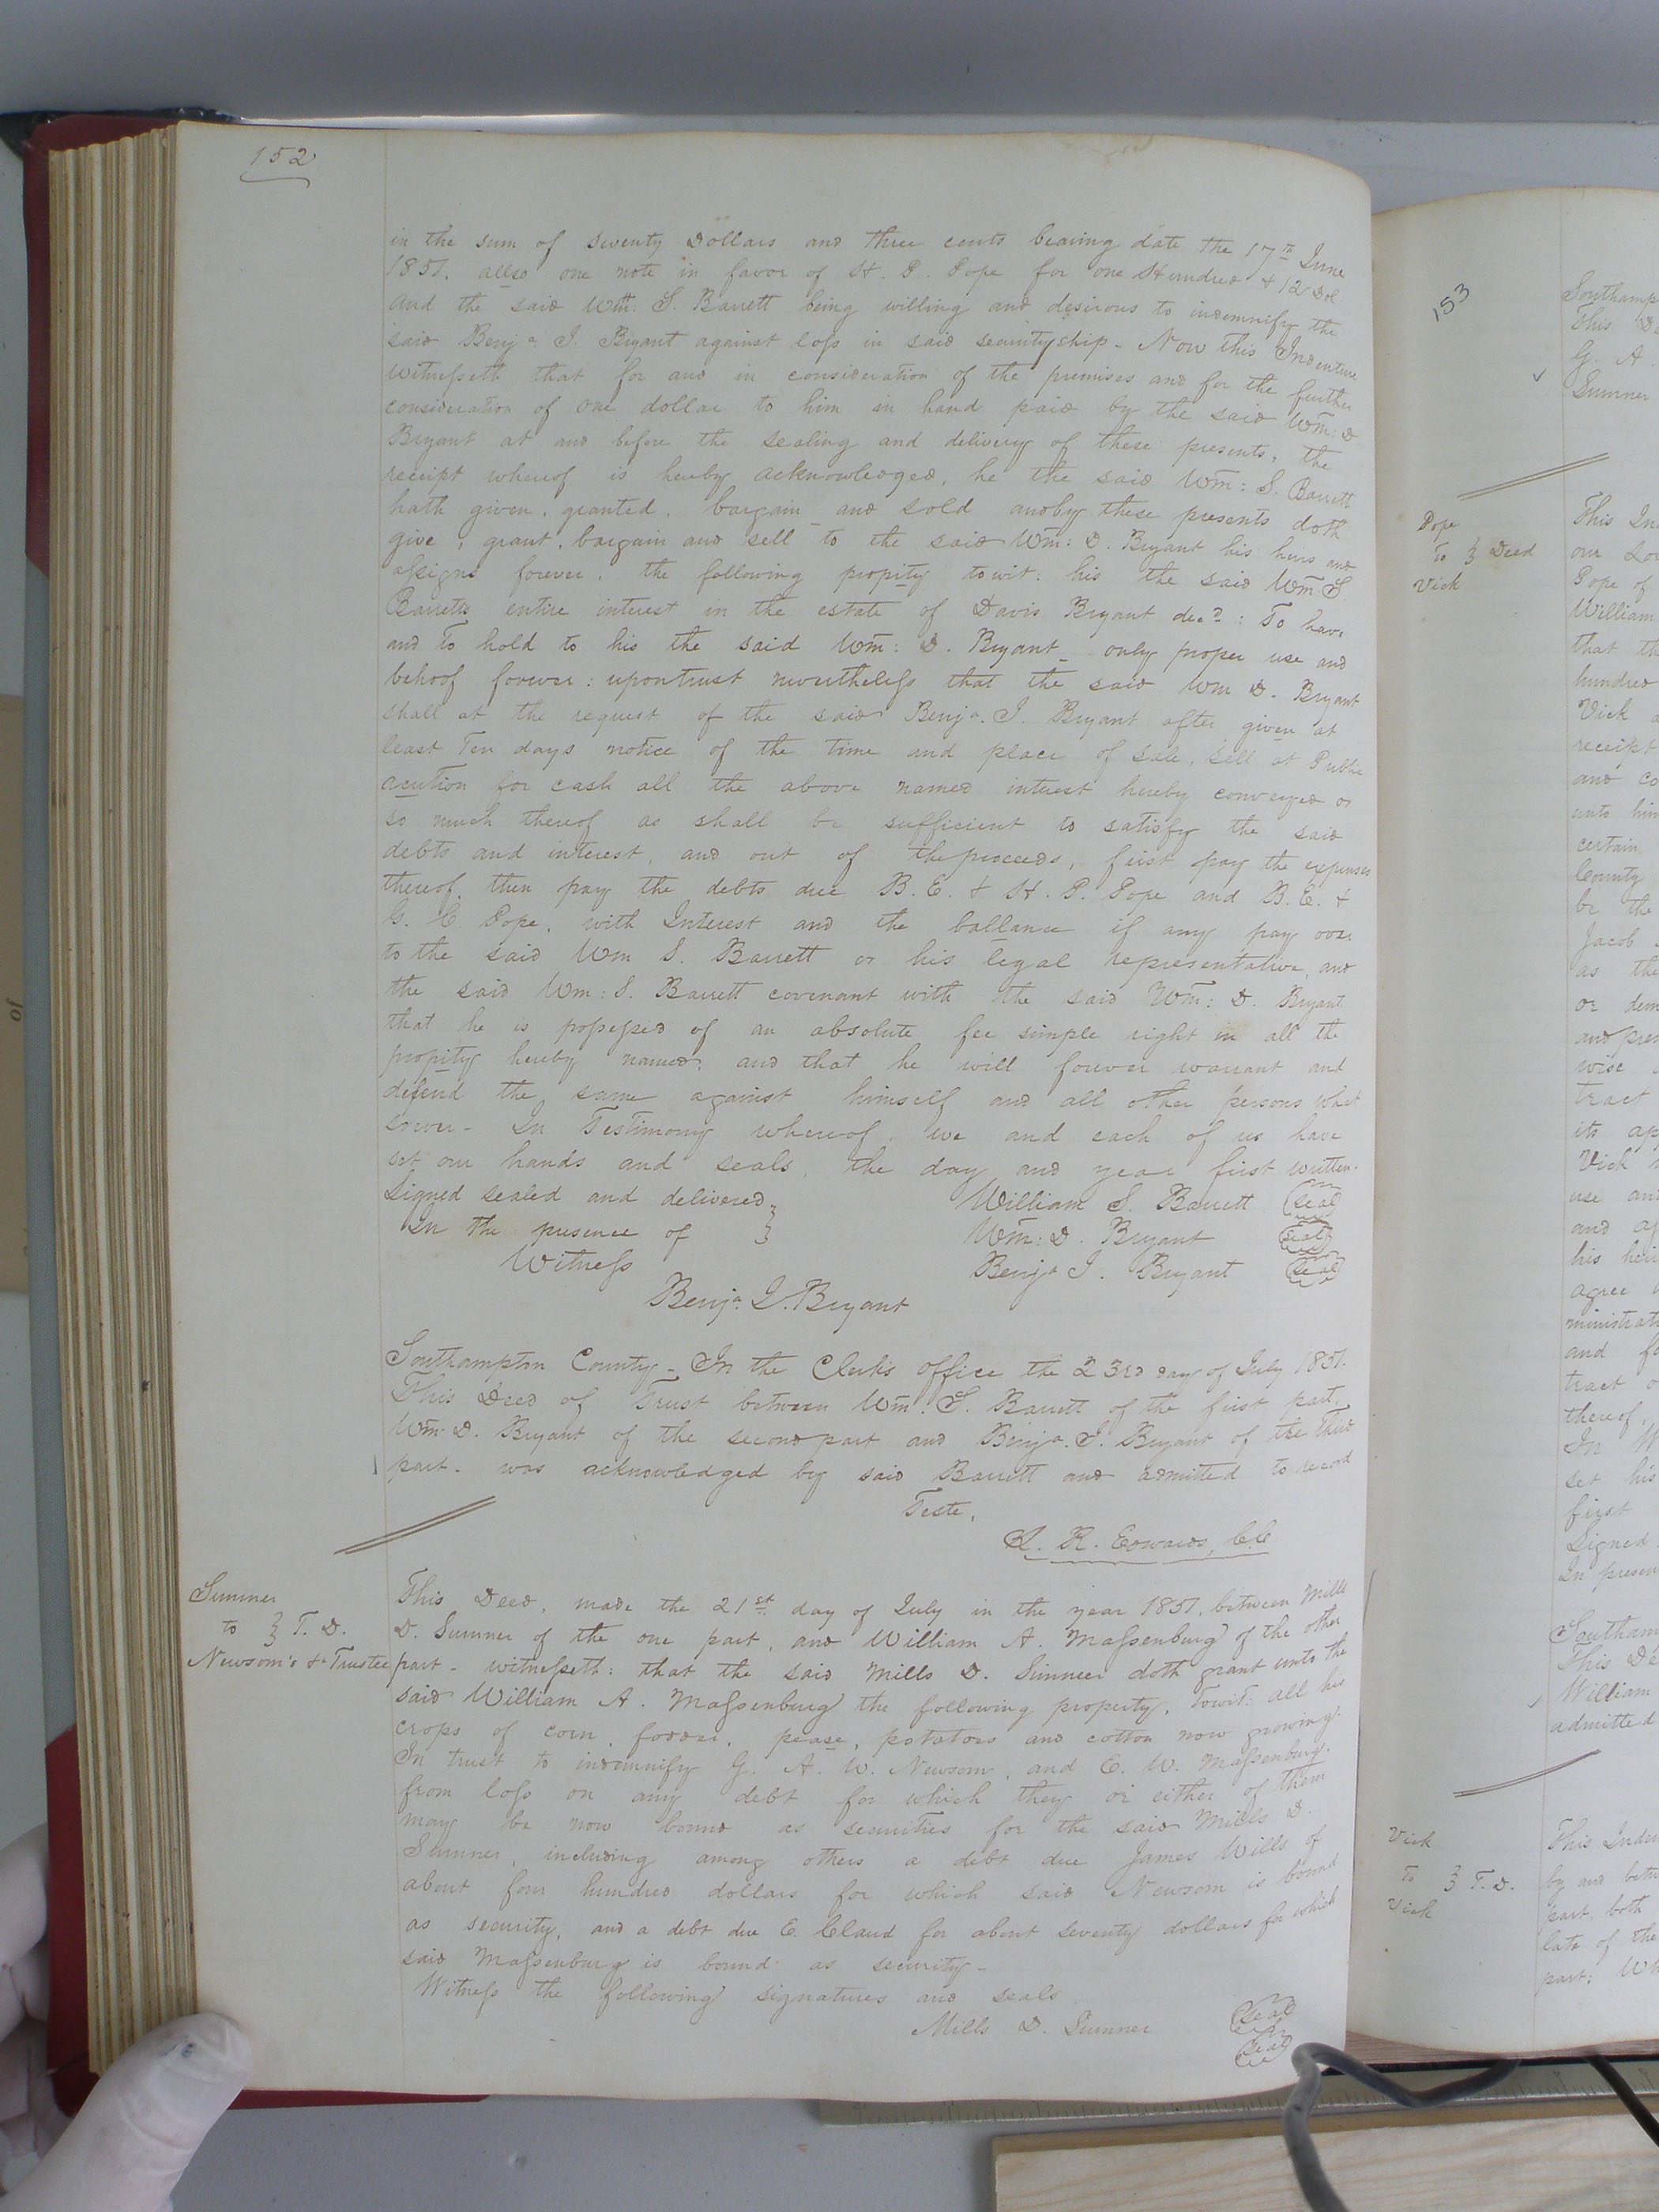 152
in the sum of Seventy Dollars and three cents bearing date the 17th June
1851. allso one note in favor of H. P. Pope for one Hundred + 12 Dol
and the said Wm: S. Barrett being willing and desirous to indemnify the
said Benja J. Bryant against loss in said securityship - Now this Indenture
witnesseth that for and in consideration of the premises and for the further
consideration of one dollar to him in hand paid by the said Wm: D
Bryant at and before the sealing and delivery of these presents, the
receipt whereof is hereby acknowledged, he the said Wm: S. Barrett
hath given, granted, bargain and sold and by these presents doth
give, grant, bargain and sell to the said Wm: D. Bryant his heirs and
assigns forever, the following propity towit: his the said Wm. S.
Barretts entire interest in the estate of Davis Bryant decd: To have
and To hold to his the said Wm: D. Bryant only proper use and
behoof forever: upon trust nevertheless that the said Wm D. Bryant
shall at the request of the said Benja. J. Bryant after given at
least Ten days notice of the time and place of sale, sell at Public
acution for cash all the above named interest hereby conveyed or
so much thereof as shall be sufficient to satisfy the said
debts and interest, and out of the proceeds, first pay the expenses
thereof, then pay the debts due B. E. + H. P. Pope and B. E. +
G. C. Pope, with Interest and the ballance if any pay over
to the said Wm S. Barrett or his legal representative, and
the said Wm: S. Barrett covenant with the said Wm: D. Bryant
that he is possessed of an absolute fee simple right in all the
propity hereby named, and that he will forever warrant and
defend the same against himself and all other persons what
soever - In Testimony whereof, we and each of us have
set our hands and seals, the day and year first written.
Signed sealed and delivered } William S. Barrett (seal)
In the presence of } Wm: D. Bryant (seal)
Witness Benja J. Bryant (seal)
Benja. J. Bryant
Southampton County - In the Clerks office the 23rd day of July 1851.
This Deed of Trust between Wm. S. Barrett of the first part,
Wm. D. Bryant of the second part and Benja. J. Bryant of the third
part - was acknowledged by said Barrett and admitted to record
Teste,
L. R. Edwards, C.C
Sumner
to } T. D.
Newsom's &c Trustee
This Deed, made the 21st day of July in the year 1851, between Mills
D. Sumner of the one part, and William A. Massenburg of the other
part - witnesseth: that the said Mills D. Sumner doth grant unto the
said William A. Massenburg the following property, Towit: all his
crops of corn, fodder, pease, potatoes and cotton now growing.
In trust to indemnify G. A. W. Newsom, and C. W. Massenburg.
from loss on any debt for which they or either of them
may be now bound as securities for the said Mills D.
Sumner, including among others a debt due James Wills of
about four hundred dollars for which said Newsom is bound
as security, and a debt due E. Claud for about Seventy dollars for which
said Massenburg is bound as security -
Witness the following signatures and seals
Mills D. Sumner (seal)
(seal)
153
Southamp
This De
G. A.
Sumner
Pope
To } Deed
Vick
This In
our Lo
Pope of
William
that th
hundred
Vick a
receipt
and co
unto him
certain
County
be the
Jacob
as the
or dem
and pre
wise
tract
its ap
Vick
use an
and a
his heir
agree
ministrat
and fo
tract o
thereof,
In W
set his
first
Signed
In presen
Southam
This De
William
admitted
Vick
To } T. D.
Vick
This Inde
by and betw
part, both
late of the
part: Wh